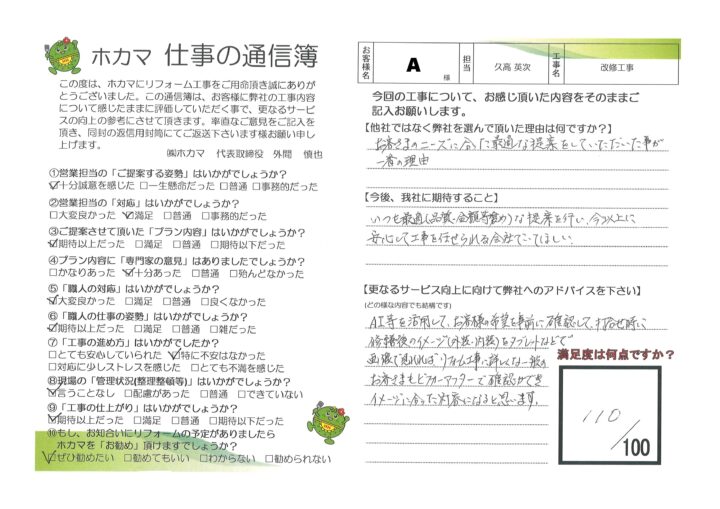 ホカマ 仕事の通信簿
この度は、ホカマにリフォーム工事をご用命頂き誠にありが
とうございました。この通信簿は、お客様に弊社の工事内容
について感じたままに評価していただく事で、更なるサービ
スの向上の参考にさせて頂きます。率直なご意見をご記入を
頂き、同封の返信用封筒にてご返送下さいます様お願い申し
上げます。
㈱ホカマ 代表取締役 外間 慎也
①営業担当の「ご提案する姿勢」はいかがでしょうか?
☑十分誠意を感じた □一生懸命だった □普通 □事務的だった
②営業担当の「対応」はいかがでしょうか?
□大変良かった ☑満足 □普通 □事務的だった
③ご提案させて頂いた「プラン内容」はいかがでしょうか?
☑期待以上だった □満足 □普通 □期待以下だった
④プラン内容に「専門家の意見」はありましたでしょうか?
□かなりあった ☑十分あった □普通 □殆んどなかった
⑤「職人の対応」はいかがでしょうか?
☑大変良かった □満足 □普通 □良くなかった
⑥「職人の仕事の姿勢」はいかがでしょうか?
☑期待以上だった □満足 □普通 □雑だった
⑦「工事の進め方」はいかがでしたか?
□とても安心していられた ☑特に不安はなかった
□対応に少しストレスを感じた □とても不満を感じた
⑧現場の「管理状況(整理整頓等)」はいかがでしょうか?
☑言うことなし □配慮があった □普通 □できていない
⑨「工事の仕上がり」はいかがでしょうか?
☑期待以上だった □満足 □普通 □期待以下だった
⑩もし、お知合いにリフォームの予定がありましたら
ホカマを「お勧め」頂けますでしょうか?
☑ぜひ勧めたい □勧めてもいい □わからない □勧められない
お客様名 A 様 担当 久高 英次 工事名 改修工事
今回の工事について、お感じ頂いた内容をそのままご
記入お願いします。
【他社ではなく弊社を選んで頂いた理由は何ですか?】
お客さまのニーズに合った最適な提案をしていただいた事が
一番の理由
【今後、我社に期待すること】
いつも最適(品質、金額等含め)な提案を行い、今以上に
安心して工事を任せられる会社でいてほしい
【更なるサービス向上に向けて弊社へのアドバイスを下さい】
(どの様な内容でも結構です)
AI等を活用して、お客様の希望を事前に確認して、打合せ時に
修繕後のイメージ(外装、内装)をタブレットなどで
画像で見れればリフォーム工事に詳しくな
お客さまもビフォーアフターで確認ができ
イメージに合った対応になると思います。
満足度は何点ですか?
110
/100